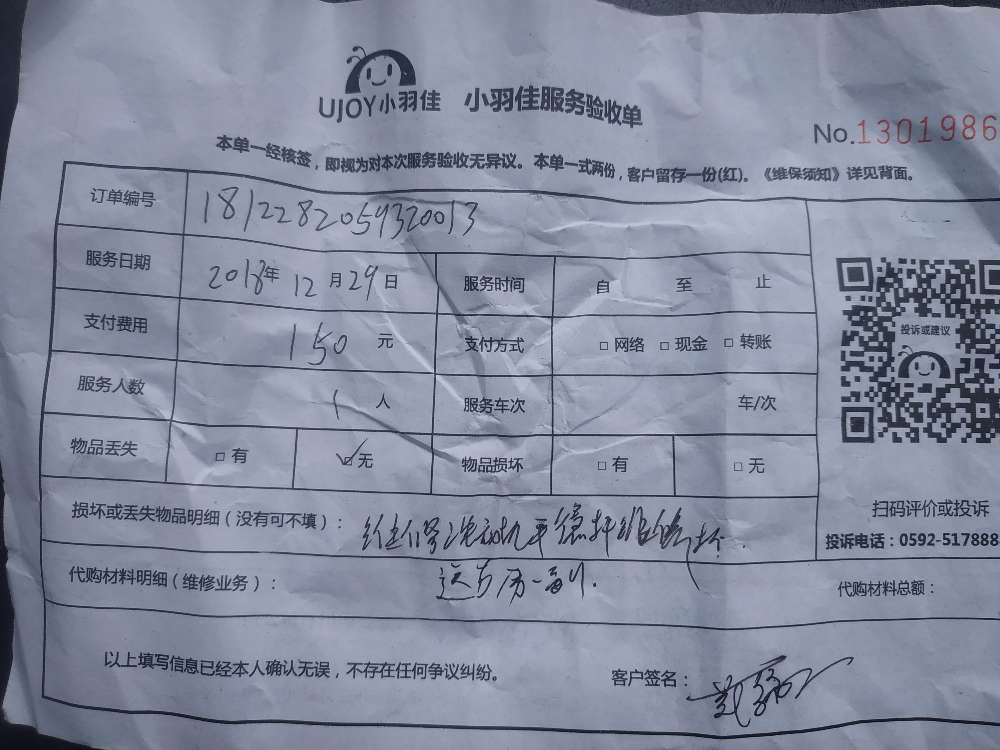 UJOY小羽佳 小羽佳服务验收单
No.1301986
本单一经核签，即视为对本次服务验收无异议。本单一式两份，客户留存一份(红)。《维保须知》详见背面。
订单编号 1812282059320013
服务日期 2018年 12月 29日 服务时间 自 至 止
支付费用 150 元 支付方式 □ 网络 □ 现金 □ 转账
服务人数 1 人 服务车次 车/次
物品丢失 □ 有 ☑ 无 物品损坏 □ 有 □ 无
投诉或建议
扫码评价或投诉
投诉电话：0592-517888
损坏或丢失物品明细（没有可不填）：
代购材料明细（维修业务）： 代购材料总额：
以上填写信息已经本人确认无误，不存在任何争议纠纷。 客户签名：